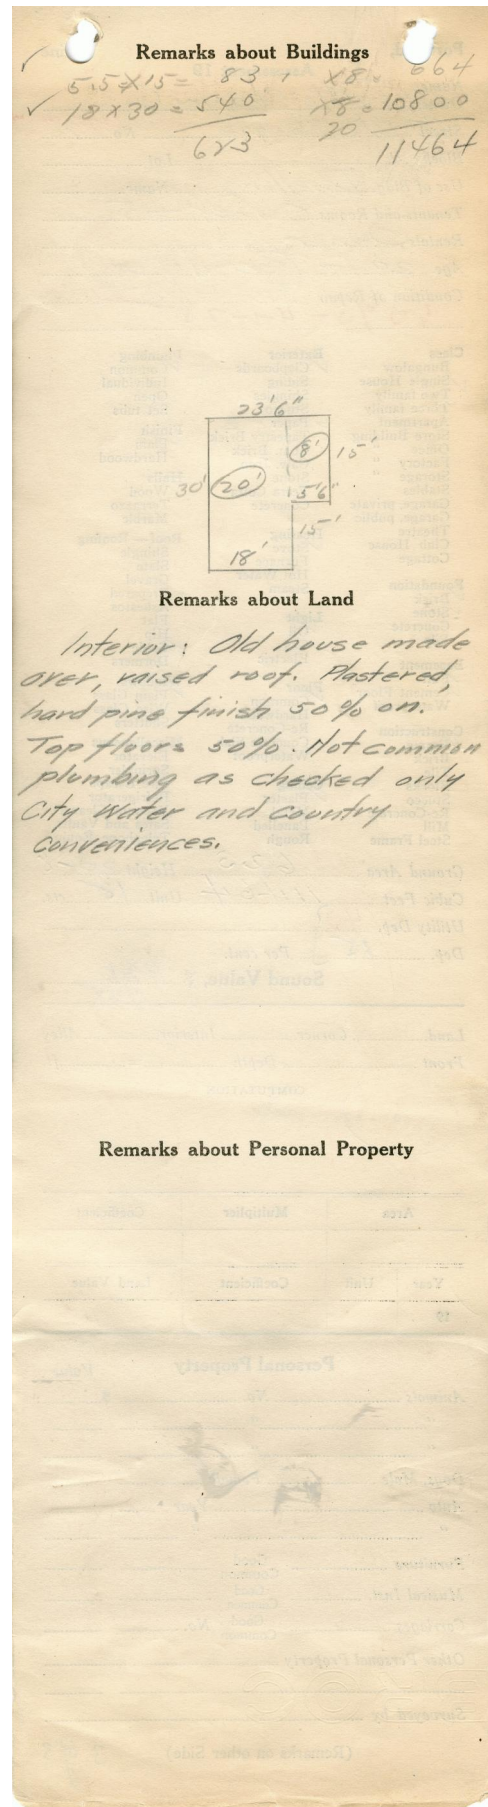 Remarks about Buildings
5.5 x 15 = 83, x 8 = 664
18 x 30 = 540 x 8 = 10800
623 20 11464
23'6"
8' 15'
30' 20' 5'6"
15'
18'
Remarks about Land
Interior: Old house made
over, raised roof. Plastered,
hard pine finish 50% on.
Top floors 50%. Not common
plumbing as checked only
City Water and Country
Conveniences.
Remarks about Personal Property